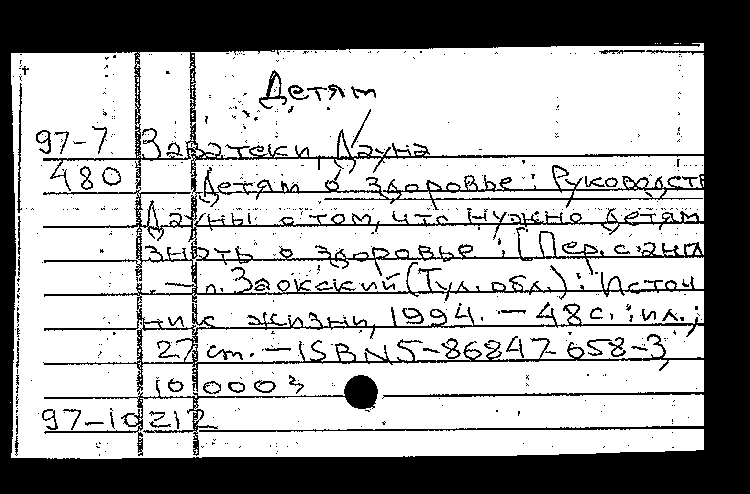 Детям
97-7 Заватски, Дауна
480 Детям о здоровье : Руководств
Дауны о том, что нужно детям
знать о здоровье : [Пер. с англ
. — п. Заокский (Тул. обл.) : Источ
ник жизни, 1994. — 48 с. : ил. ;
27 cm. — ISBN 5-86847-058-3,
10 000 э
97-10212